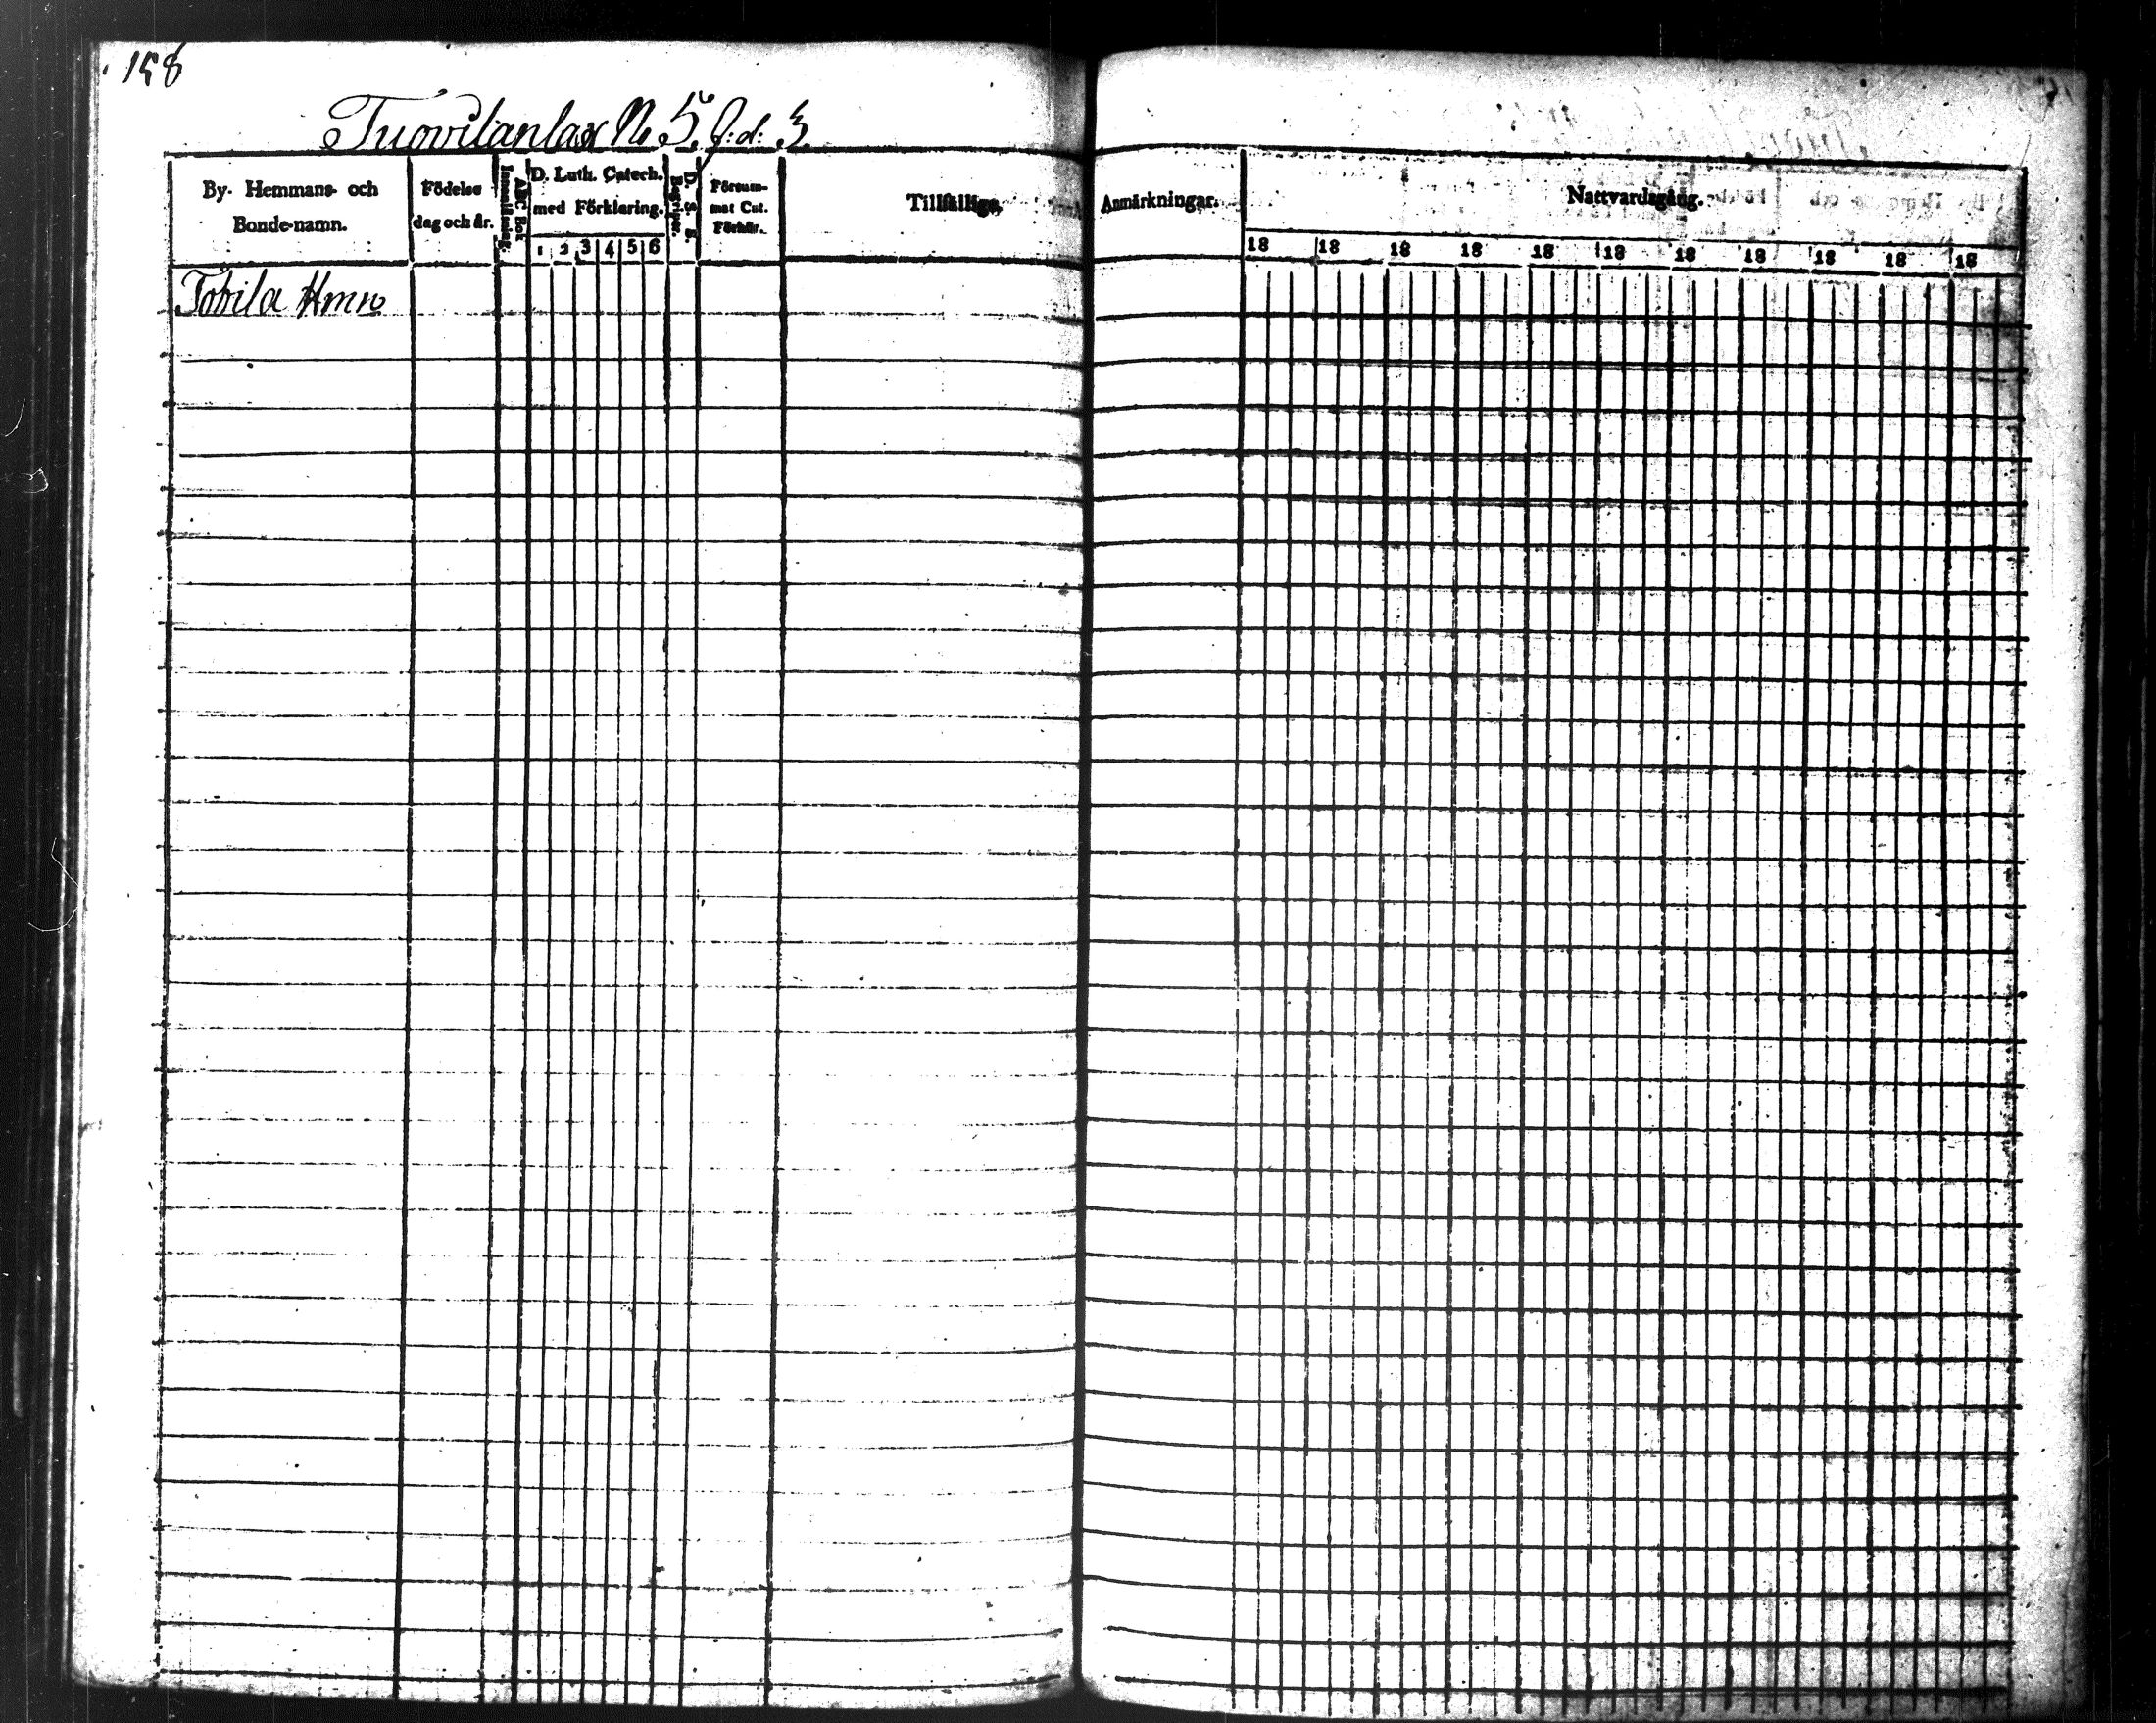 158
Tuovilanlax No 5. J:d: 3.
By- Hemmans- och Bonde-namn.
Födelse dag och år.
ABC Bok Innanläsning.
D. Luth. Catech. med Förklaring.
1 2 3 4 5 6
D. S. S. Begriper.
Försummat Cat. Förhör.
Tillfällige
Anmärkningar.
Nattvardsgång.
18 18 18 18 18 18 18 18 18 18 18
Tobila Hmn